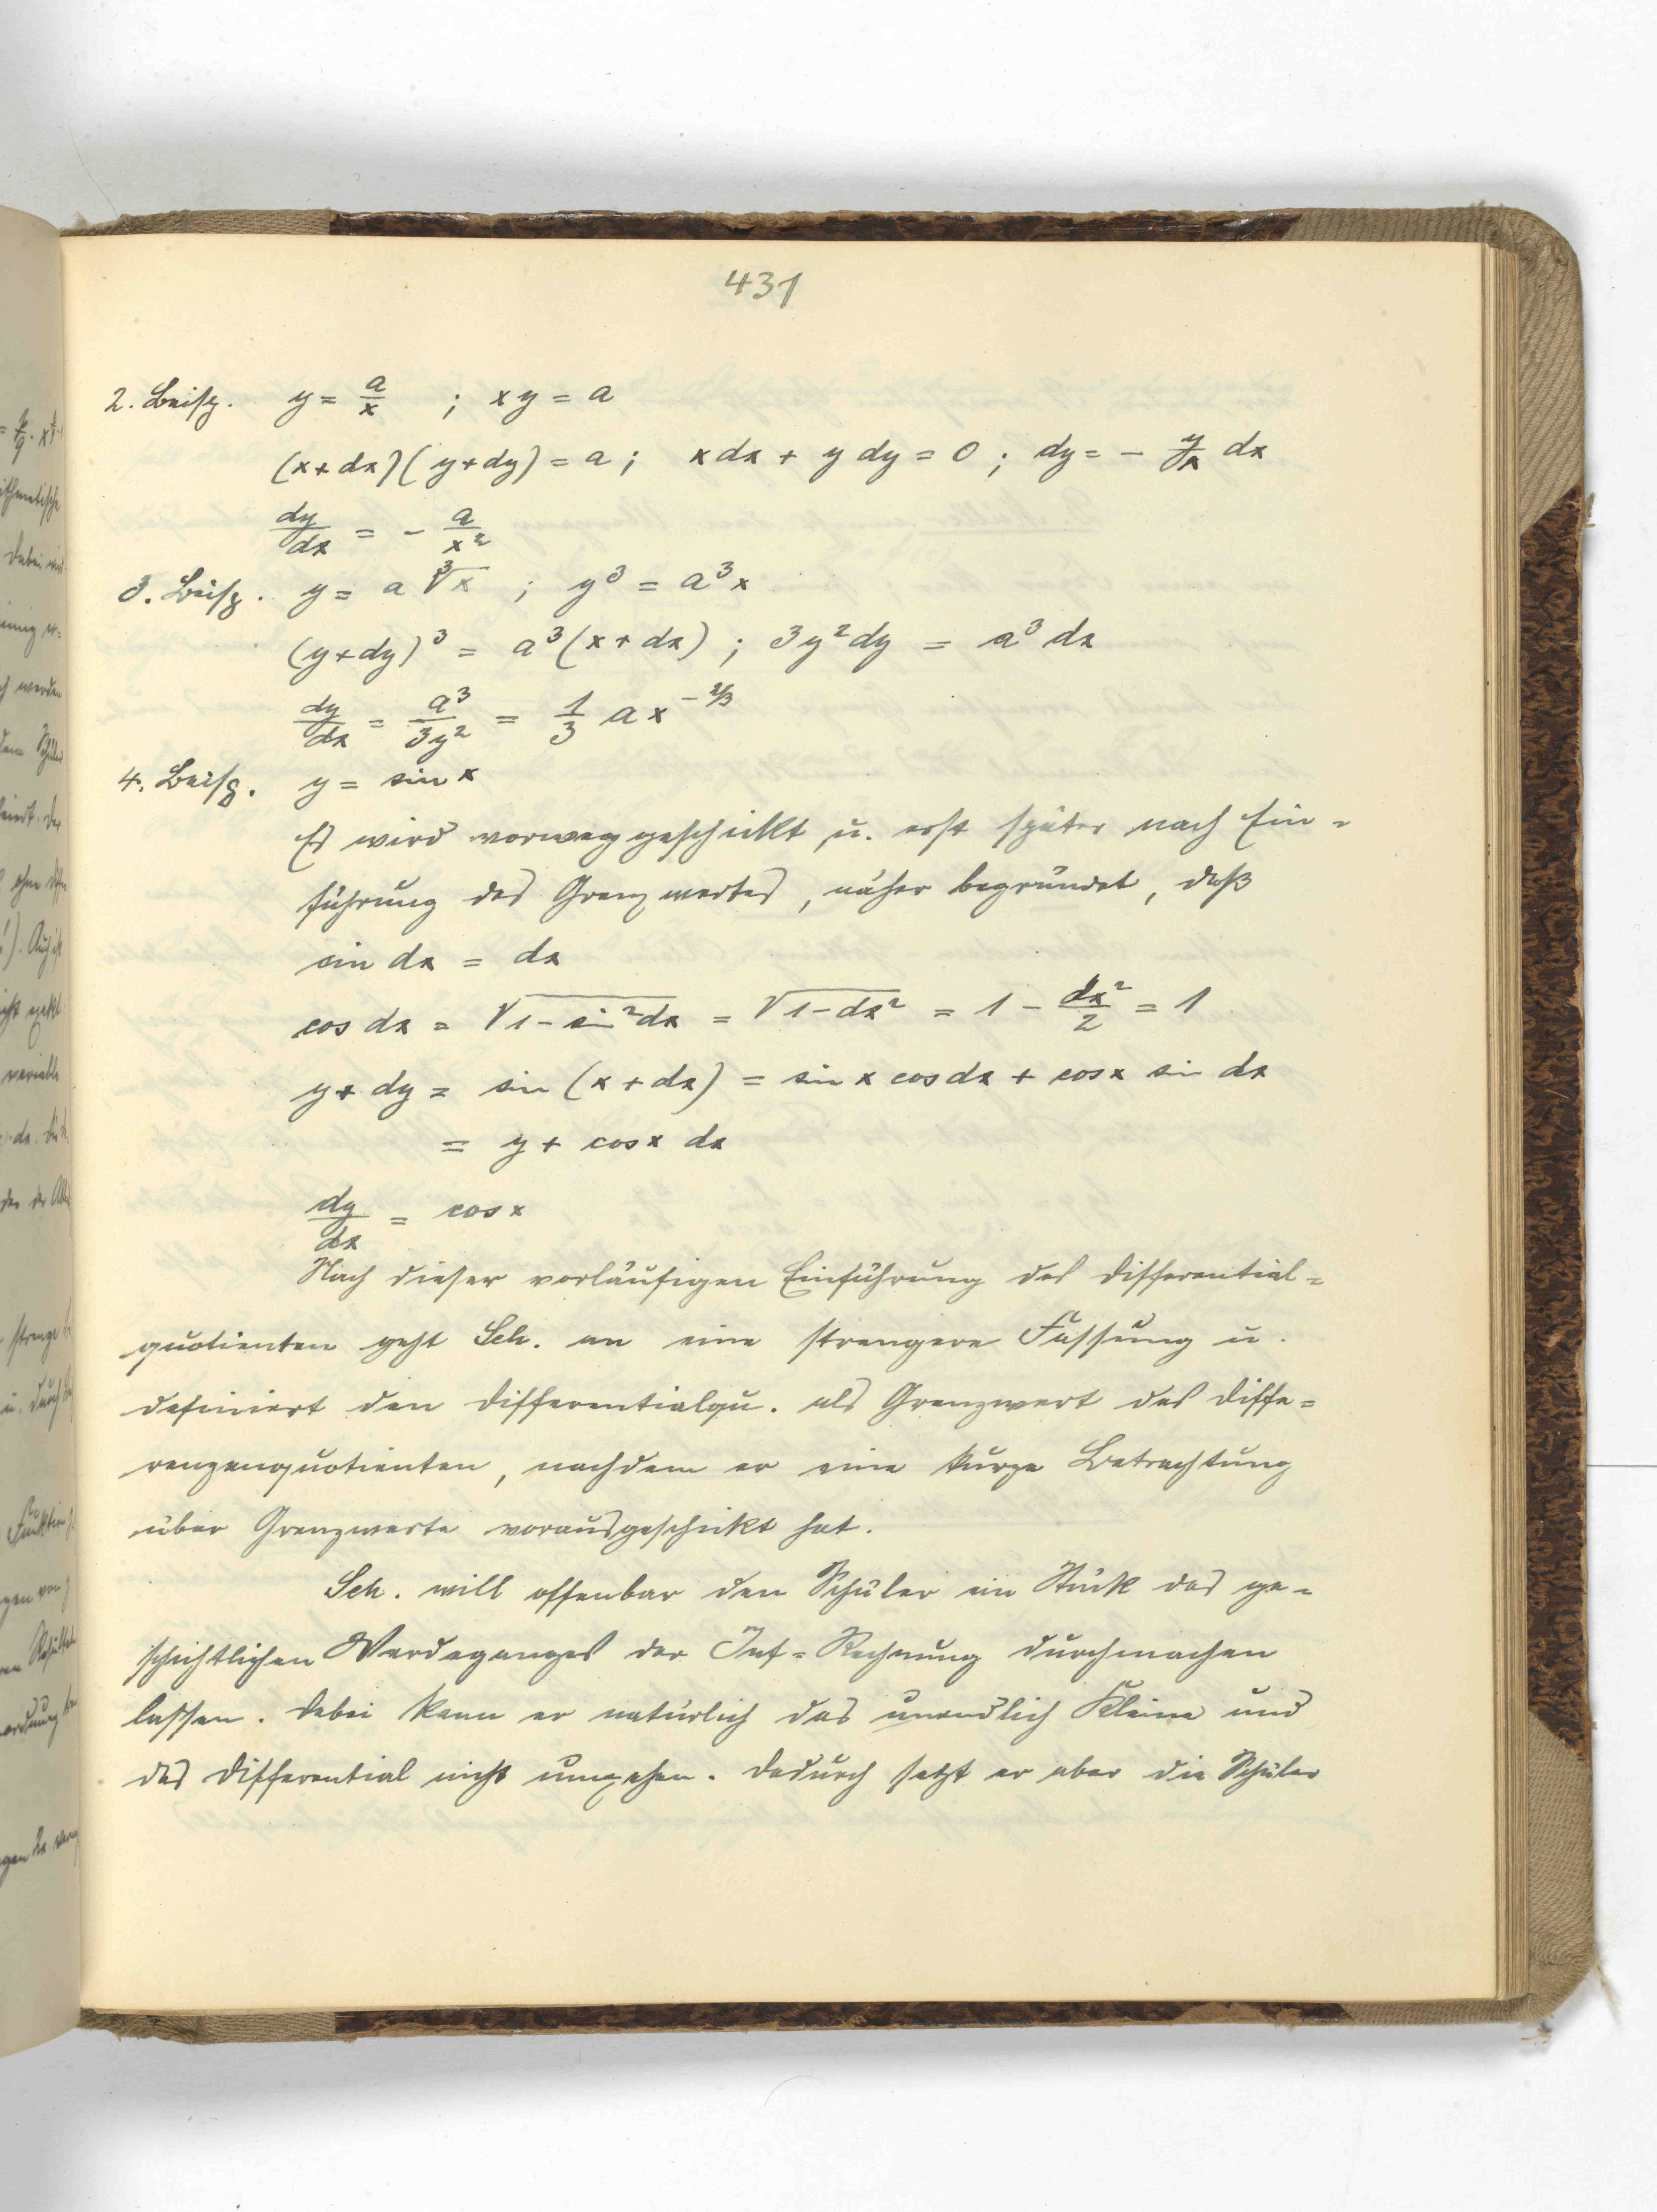 431
2. Beisp. y = a/x ; xy = a
(x+dx)(y+dy) = a ; x dx + y dy = 0 ; dy = - y/x dx
dy/dx = - a/x²
3. Beisp. y = a ∛x ; y³ = a³x
(y+dy)³ = a³(x+dx) ; 3y²dy = a³dx
dy/dx = a³/3y² = 1/3 a x^-2/3
4. Beisp. y = sin x
Es wird vorweggeschickt u. erst später nach Ein-
führung des Grenzwertes, näher begründet, daß
sin dx = dx
cos dx = √1-sin²dx = √1-dx² = 1 - dx²/2 = 1
y + dy = sin (x+dx) = sin x cos dx + cos x sin dx
= y + cos x dx
dy/dx = cos x
Nach dieser vorläufigen Einführung des Differential-
quotienten geht Sch. an eine strengere Fassung u.
definiert den Differentialqu. als Grenzwert des Diffe-
renzenquotienten, nachdem er eine kurze Betrachtung
über Grenzwerte vorausgeschickt hat.
Sch. will offenbar den Schüler ein Stück des ge-
schichtlichen Werdeganges der Inf-Rechnung durchmachen
lassen. Dabei kann er natürlich das unendlich Kleine und
das Differential nicht umgehen. Dadurch setzt er aber die Schüler